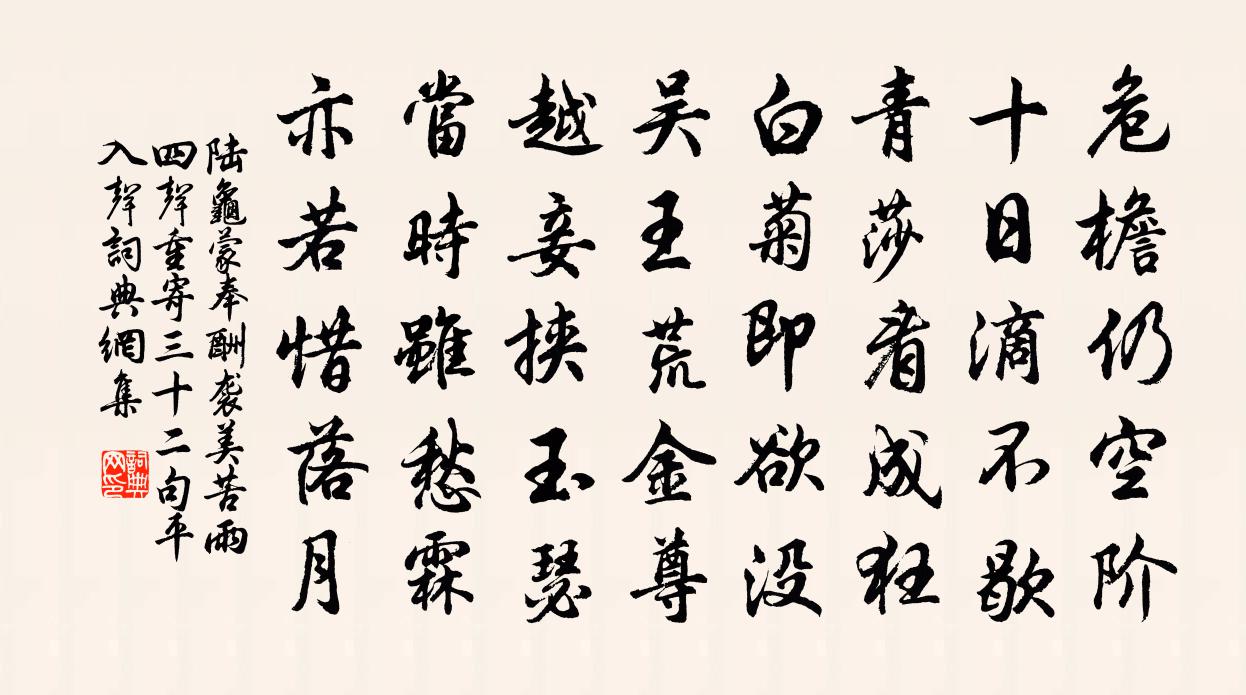 危檐仍空阶
十日滴不歇
青莎看成狂
白菊即欲没
吴王荒金尊
越妾挟玉瑟
當時雖愁霖
亦若惜落月
陆龜蒙奉酬袭美苦雨
四聲重寄三十二句平
入聲詞典網集
詞典
网印